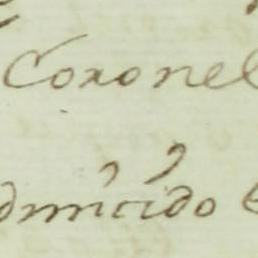 Coronel
admitido